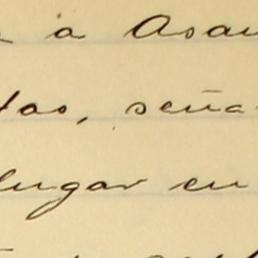 a Asan
tas, seña
lugar en